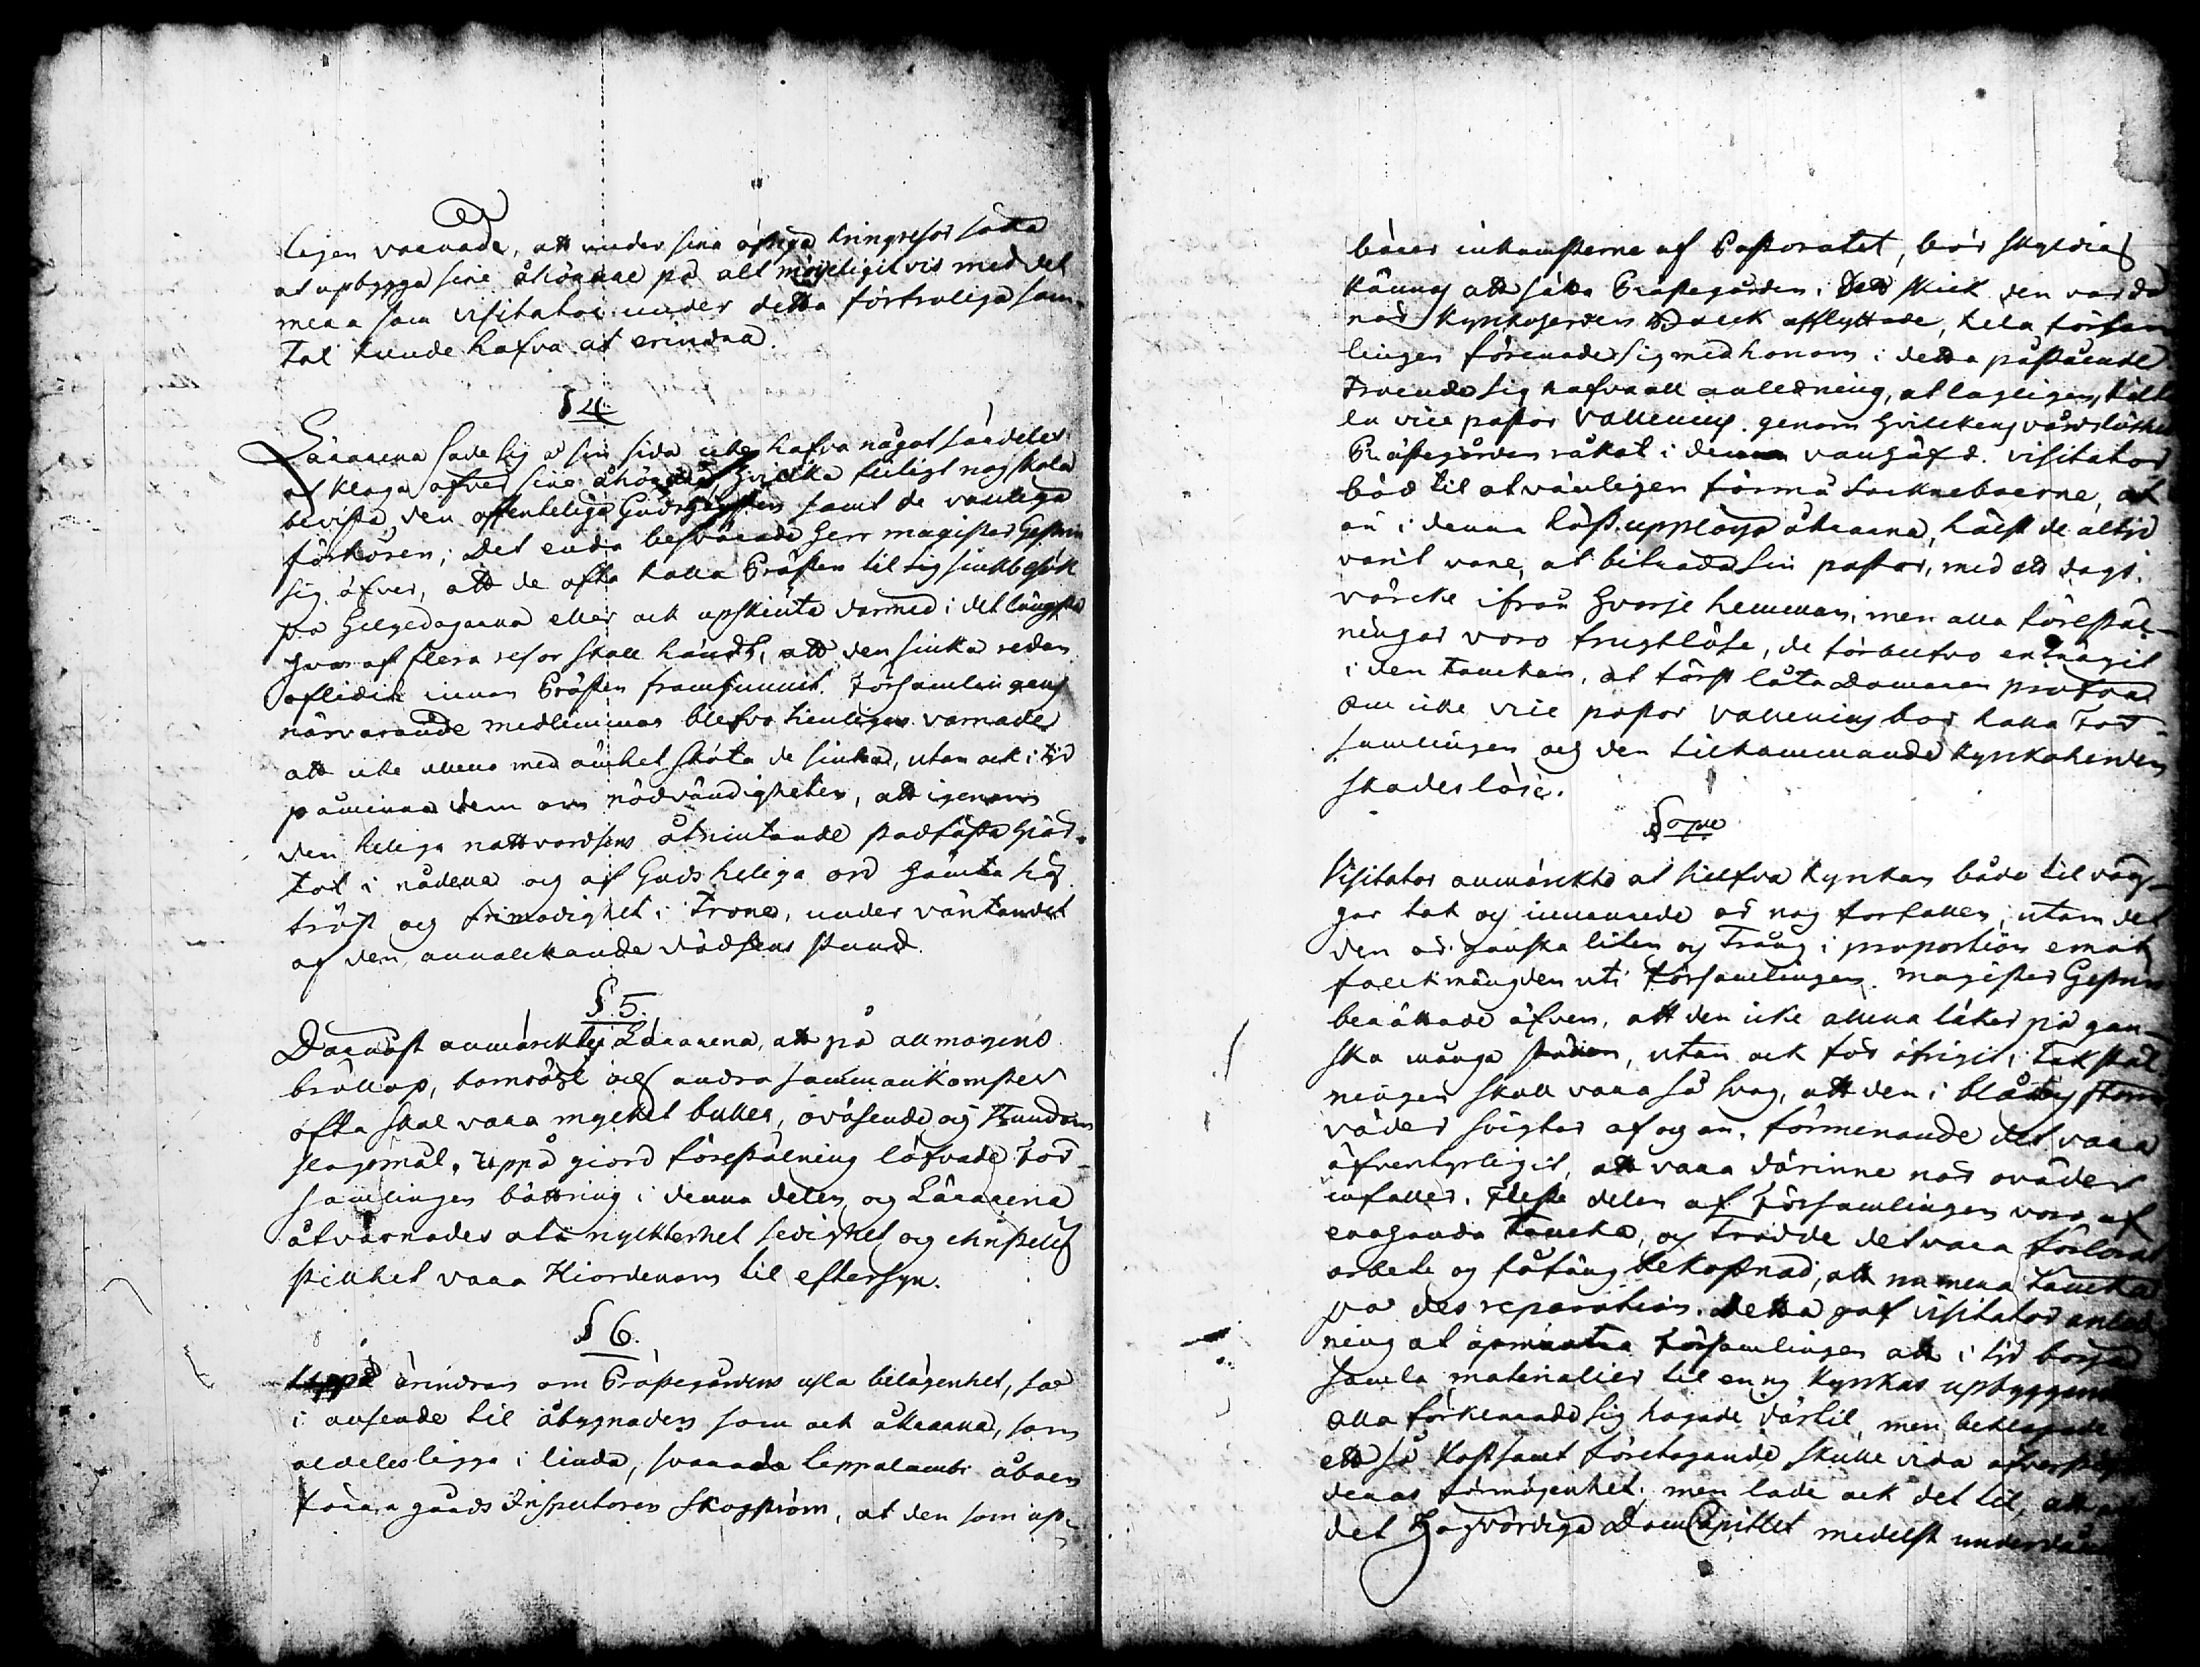 ligen varnade, att under sina öfriga kringresor söka
at upbygga sine åhörare på alt möijeligit vis med det
mera som visitator under detta förtroliga sam-
tal kunde hafva at erindra.
§ 4.
Lärarena sade sig å sin sida icke hafva något särdeles
at klaga öfver sine åhörare hvilka fliligt nog skola
bevista den offenteliga Gudstjensten samt de vanliga
förhören; Det enda besvärade Herr magister
sig öfver, att de ofta kalla Prästen til sig siukbesök
på Helgedagarna eller ock upskiuta darmed i det längsta
hvar af flera resor skall händt, att den siuka redan
aflidit innan Prästen framhunnit. Församlingens
närvarande medlemmar blefvo kenligen varnade
att icke allena med ömhet sköta de siuka, utan ock i tid
påminna dem om nödvändigheten, att igenom
den heliga nattvardsens åtniutande stadfästa hjär-
tat i nådena og af Guds heliga ord hämta hög
tröst og frimodighet i Trone, under väntandet
af den annalkande dödsens stund.
§. 5.
Darnäst anmärkte Lärarena, att på allmogens
bröllop, barnsöhl och andra sammankomster
ofta skal vara myckit buller, oväsende og stundom
slagsmål. Uppå giord föreställning låfvade För-
samlingen bättring i denna delen og Lärarena
åtvarnades at i nyckterhet sedighet og christelig
stillhet vara Hiordenom til eftersyn.
§ 6.
Uppå ärindran om Prästegårdens usla belägenhet, så
i anseende til åbygnaden som ock åkrarna, som
aldeles ligga i linda, svarade Lappalambi åboen
 gårds Inspectoren Skogström, at den som up-
bärer inkomsterne af Pastoratet, bör skyldig
kännas att sätta Prästegården i det skick den var då
når Kyrkoherden  afflyttade, hela försam
lingen förenade sig med honom i detta påstående
Troende sig hafva all anledning, at lagligen
la vice pastor Vallenius genom hvilckens vårdslöshet
Prästegården råkat i denna vanhäfd. visitator
böd til at vänligen förmå Sockneboerne, at
än i denna höst upplöija åkrarna, hälst de altid
varit vane, at biträda sin pastor, med ett dags-
värcke ifrån hvarje hemman; men alla förestäl-
ningar voro fruktlöse, de förblefvo enträgit
i den tanckan, at först låta Domaren pröfva
om icke vice pastor Vallenius bör hålla För-
samlingen og den tilkommande Kyrkoherden
skadeslöse.
§ 7me
Visitator anmärckte at sielfva kyrkan både til väg-
gar tak og innanrede är nog förfallen, utom det
den är ganska liten og Trång i proportion emot
folckmängden uti Församlingen. magister
berättade äfven, att den icke allena läker på gan-
ska många ställen, utan ock för öfrigit i Takstäl
ningen skall vara så svag, att den i blåst og storm
väder svigtar af og an, förmenande det vara
äfventyrligit, att vara därinne när oväder
infaller. Fleste delen af Församlingen voro af
enahanda tancka, og Trodde det vara förlorat
arbete og fåfäng bekostnad, att nu mera tancka
på des reparation. Detta gaf visitator anled-
ning at upmuntra Församlingen att i tid börja
samla materialier til en ny Kyrkas upbyggande
Alla förklarade sig hogade därtil, men beklagade
ett så kostsamt företagande skulle vida öfverstiga
deras förmögenhet; men lade ock det til, att
det Högvördiga DomCapittlet medelst